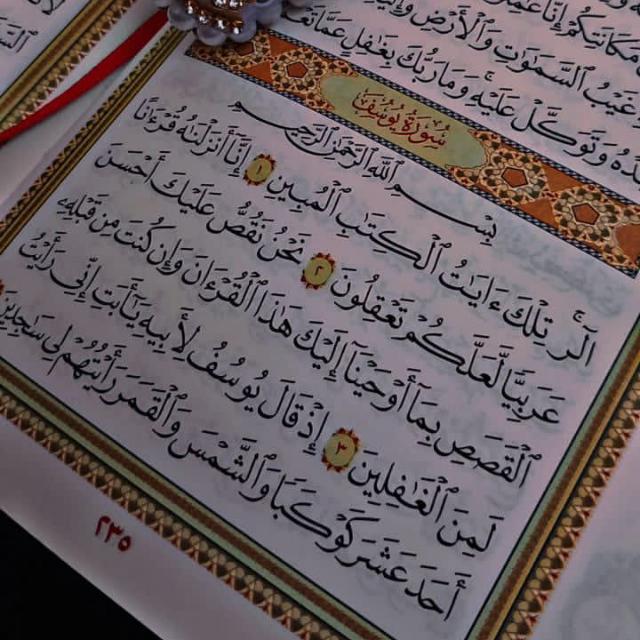 غَيْبُ ٱلسَّمَٰوَٰتِ وَٱلْأَرْضِ وَإِلَيْهِ
وَتَوَكَّلْ عَلَيْهِ وَمَا رَبُّكَ بِغَٰفِلٍ عَمَّا تَعْمَلُونَ
سُورَةُ يُوسُفَ
بِسْمِ ٱللَّهِ ٱلرَّحْمَٰنِ ٱلرَّحِيمِ
الٓر تِلْكَ ءَايَٰتُ ٱلْكِتَٰبِ ٱلْمُبِينِ ١ إِنَّآ أَنزَلْنَٰهُ قُرْءَٰنًا
عَرَبِيًّا لَّعَلَّكُمْ تَعْقِلُونَ ٢ نَحْنُ نَقُصُّ عَلَيْكَ أَحْسَنَ
ٱلْقَصَصِ بِمَآ أَوْحَيْنَآ إِلَيْكَ هَٰذَا ٱلْقُرْءَانَ وَإِن كُنتَ مِن قَبْلِهِۦ
لَمِنَ ٱلْغَٰفِلِينَ ٣ إِذْ قَالَ يُوسُفُ لِأَبِيهِ يَٰٓأَبَتِ إِنِّى رَأَيْتُ
أَحَدَ عَشَرَ كَوْكَبًا وَٱلشَّمْسَ وَٱلْقَمَرَ رَأَيْتُهُمْ لِى سَٰجِدِينَ
٢٣٥